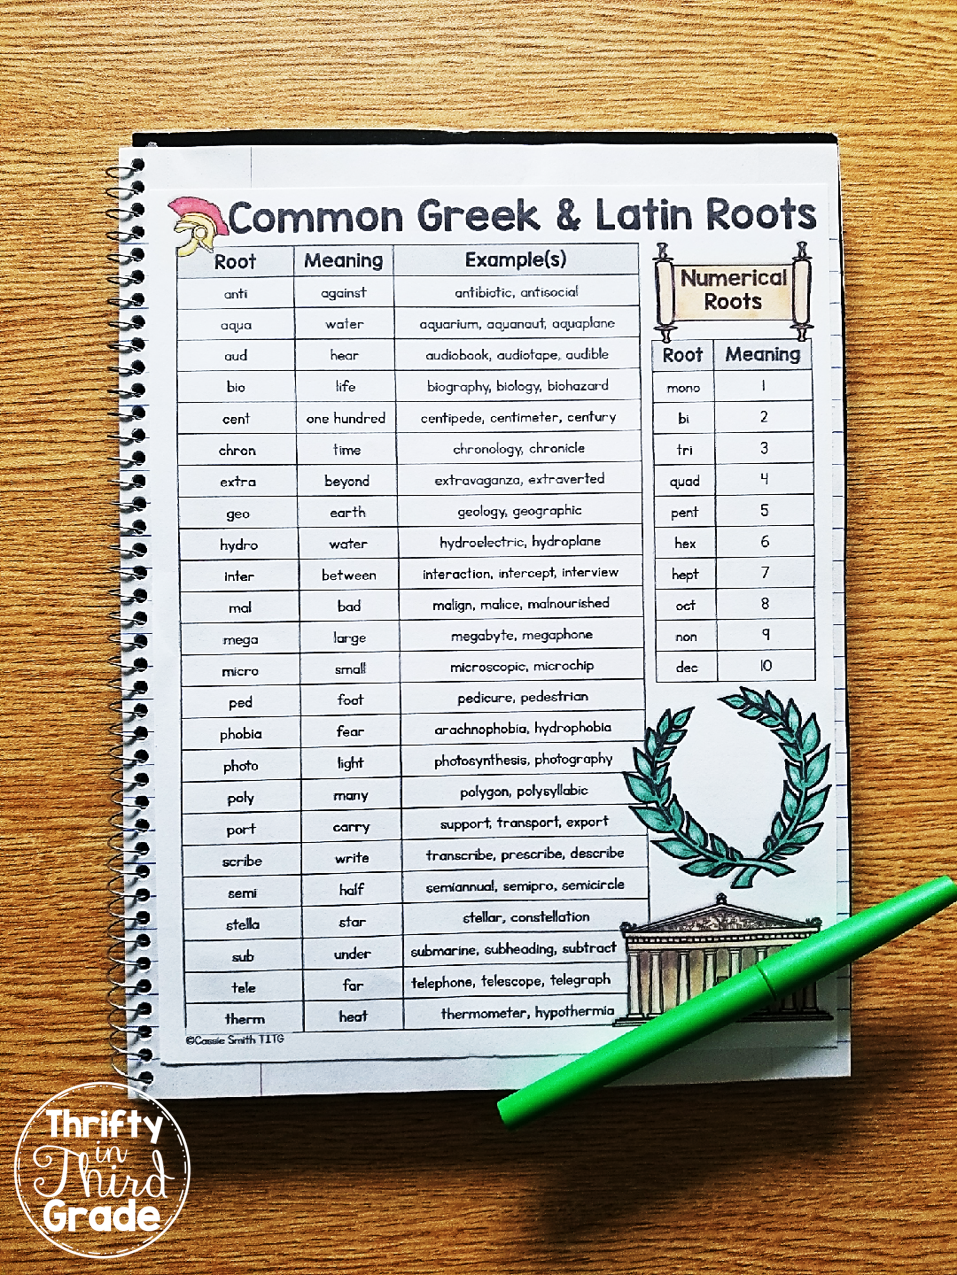 Common Greek & Latin Roots
Root Meaning Example(s)
anti against antibiotic, antisocial
aqua water aquarium, aquanaut, aquaplane
aud hear audiobook, audiotape, audible
bio life biography, biology, biohazard
cent one hundred centipede, centimeter, century
chron time chronology, chronicle
extra beyond extravaganza, extraverted
geo earth geology, geographic
hydro water hydroelectric, hydroplane
inter between interaction, intercept, interview
mal bad malign, malice, malnourished
mega large megabyte, megaphone
micro small microscopic, microchip
ped foot pedicure, pedestrian
phobia fear arachnophobia, hydrophobia
photo light photosynthesis, photography
poly many polygon, polysyllabic
port carry support, transport, export
scribe write transcribe, prescribe, describe
semi half semiannual, semipro, semicircle
stella star stellar, constellation
sub under submarine, subheading, subtract
tele far telephone, telescope, telegraph
therm heat thermometer, hypothermia
©Cassie Smith TITG
Numerical
Roots
Root Meaning
mono 1
bi 2
tri 3
quad 4
pent 5
hex 6
hept 7
oct 8
non 9
dec 10
Thrifty
in
Third
Grade